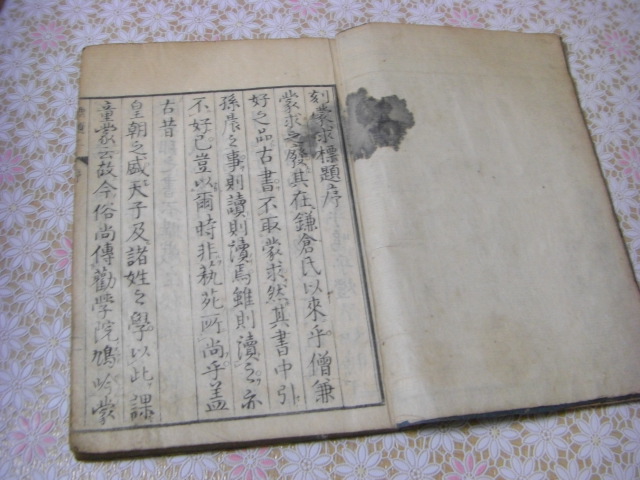 刻蒙求標題序
蒙求之廢其在鎌倉氏以來乎僧兼
好之品古書不取蒙求然其書中引
孫晨之事則讀則讀焉雖則讀之亦
不好已豈以爾時非執苑所尚乎盖
古昔
皇朝之盛天子及諸姓之學以此課
童蒙云故今俗尚傳勸學院鳩以蒙